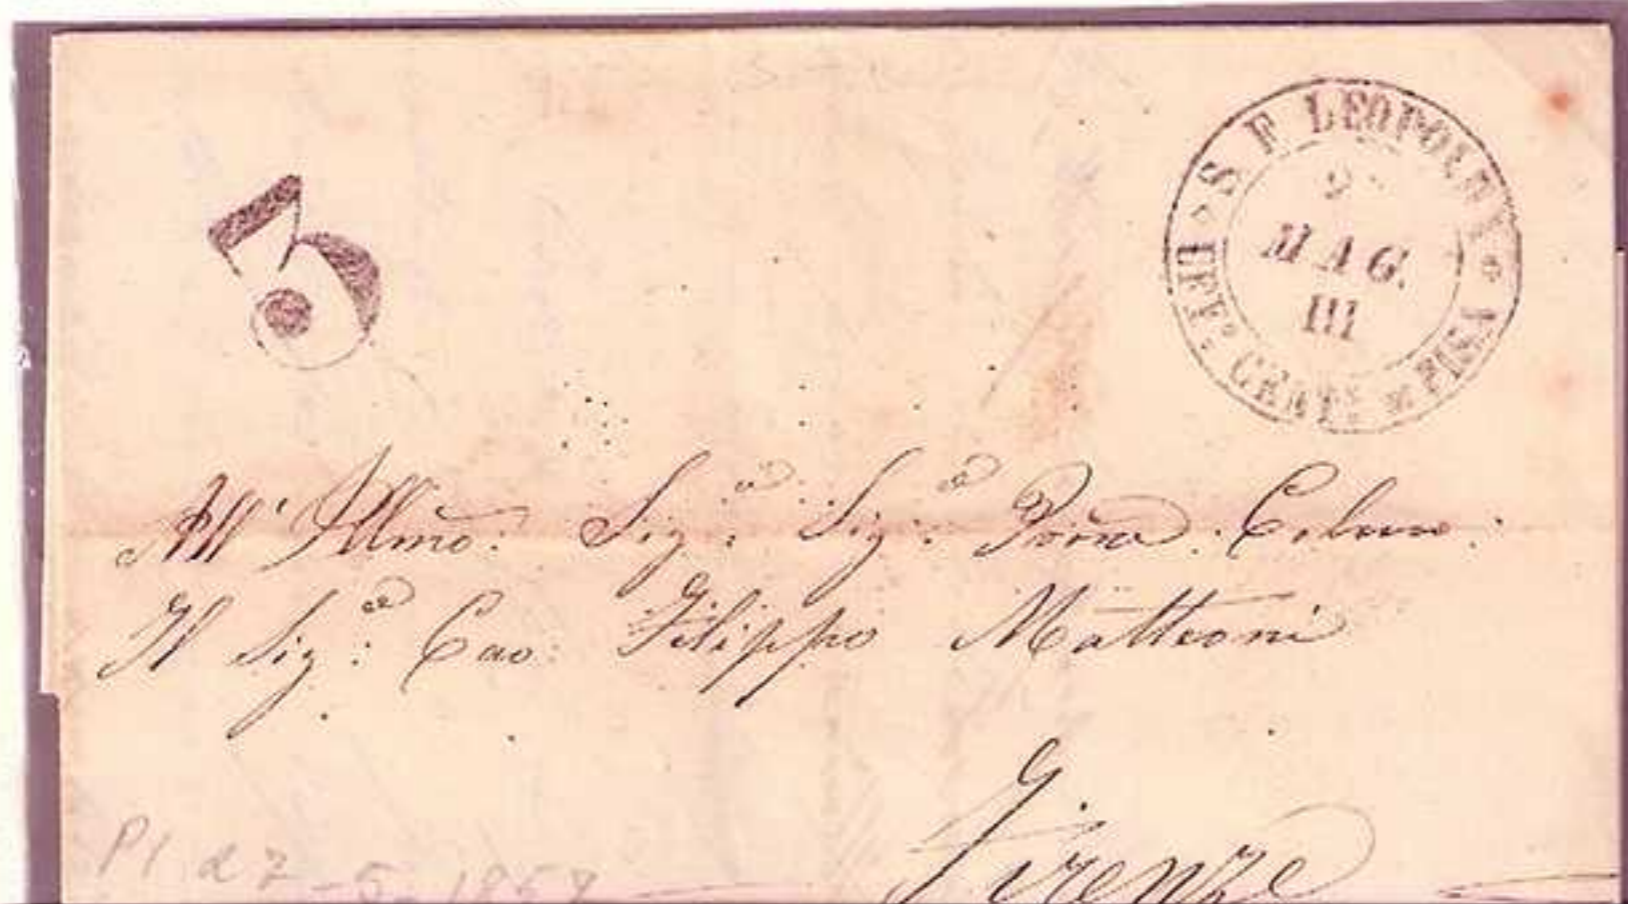 3
S F LEOPOLDA
MAG.
III
UFF° CENTE PISA
All' Illmo. Sig:re Sig:re Prone Colmo:
Il Sig:re Cav: Filippo Matteoni
Firenze
PI 27-5-1857